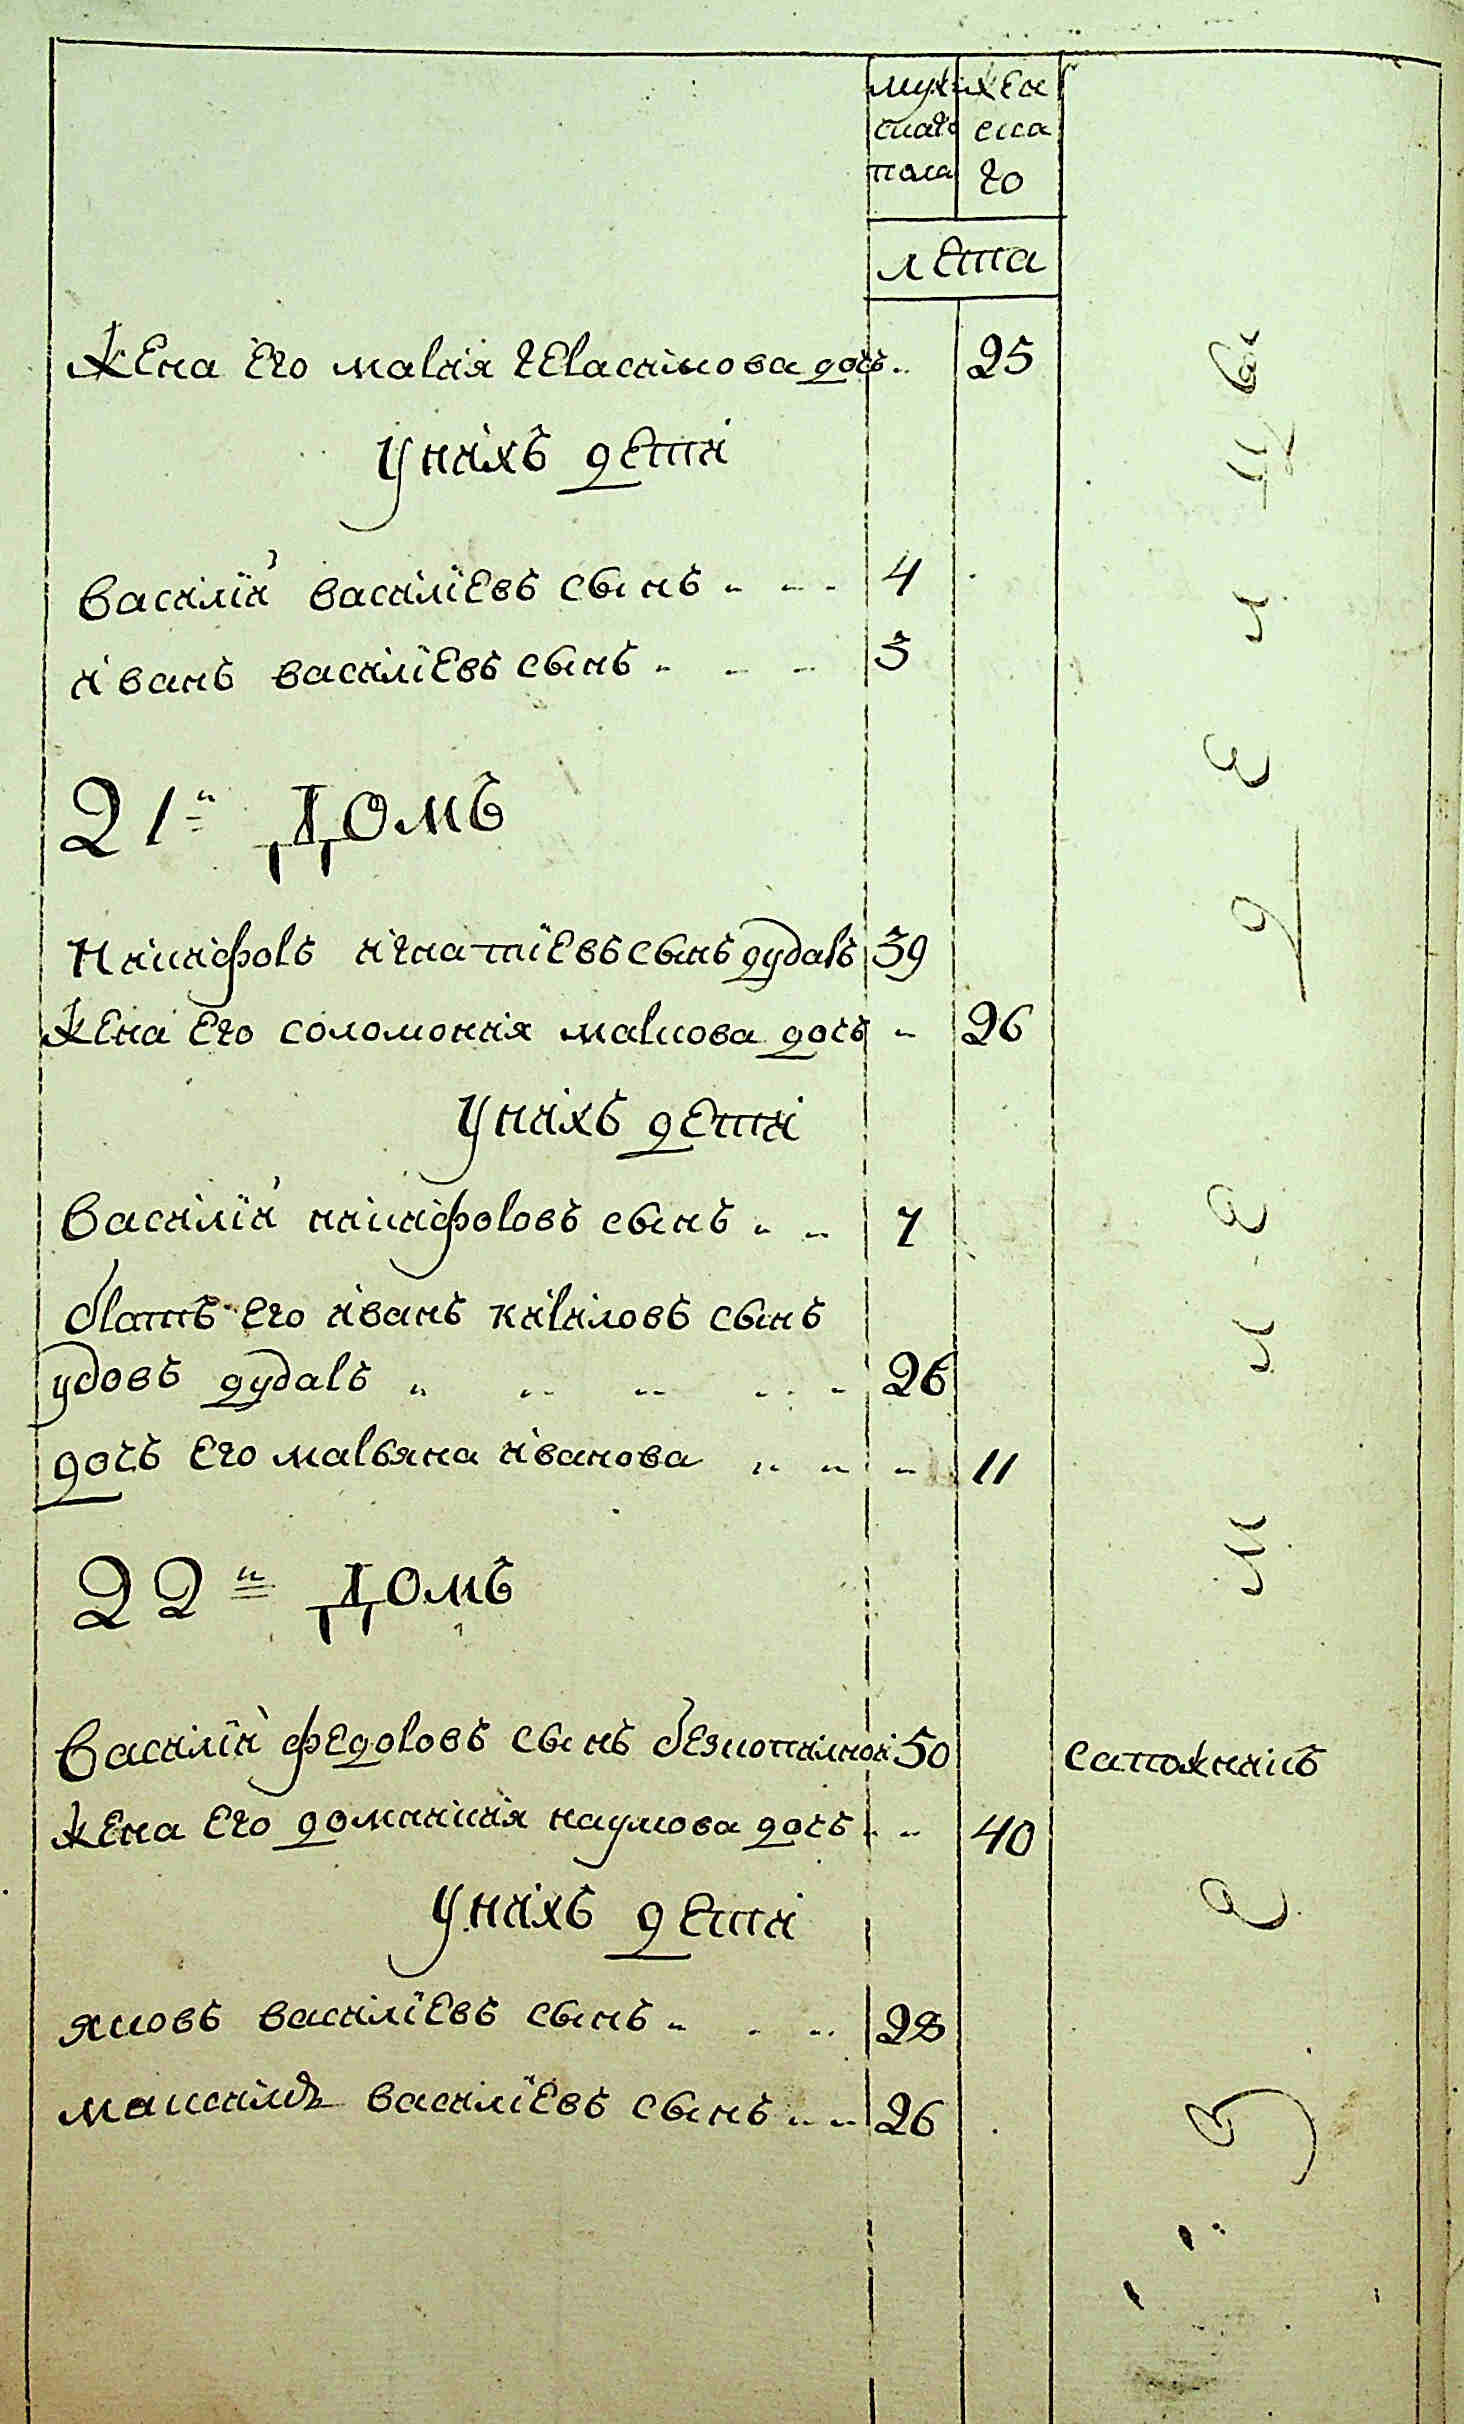 муж жен
скаго ска
пола го
лета
жена его мария герасимова дочь 25
У них дети
василий василиев сынъ 4
иванъ василиевъ сынъ 3
21й Домъ
Никифоръ игнатиевъ сынъ дударъ 39
жена его соломония маркова дочь 26
У нихъ дети
василий никифоровъ сынъ 7
братъ его иванъ кириловъ сынъ
удовъ дударъ 26
дочь его марьяна иванова 11
22й Домъ
василий федоровъ сынъ безкопилной 50 сапожникъ
жена его домникия наумова дочь 40
У нихъ дети
яковъ василиевъ сынъ 28
максимъ василиевъ сынъ 26
земледелцы